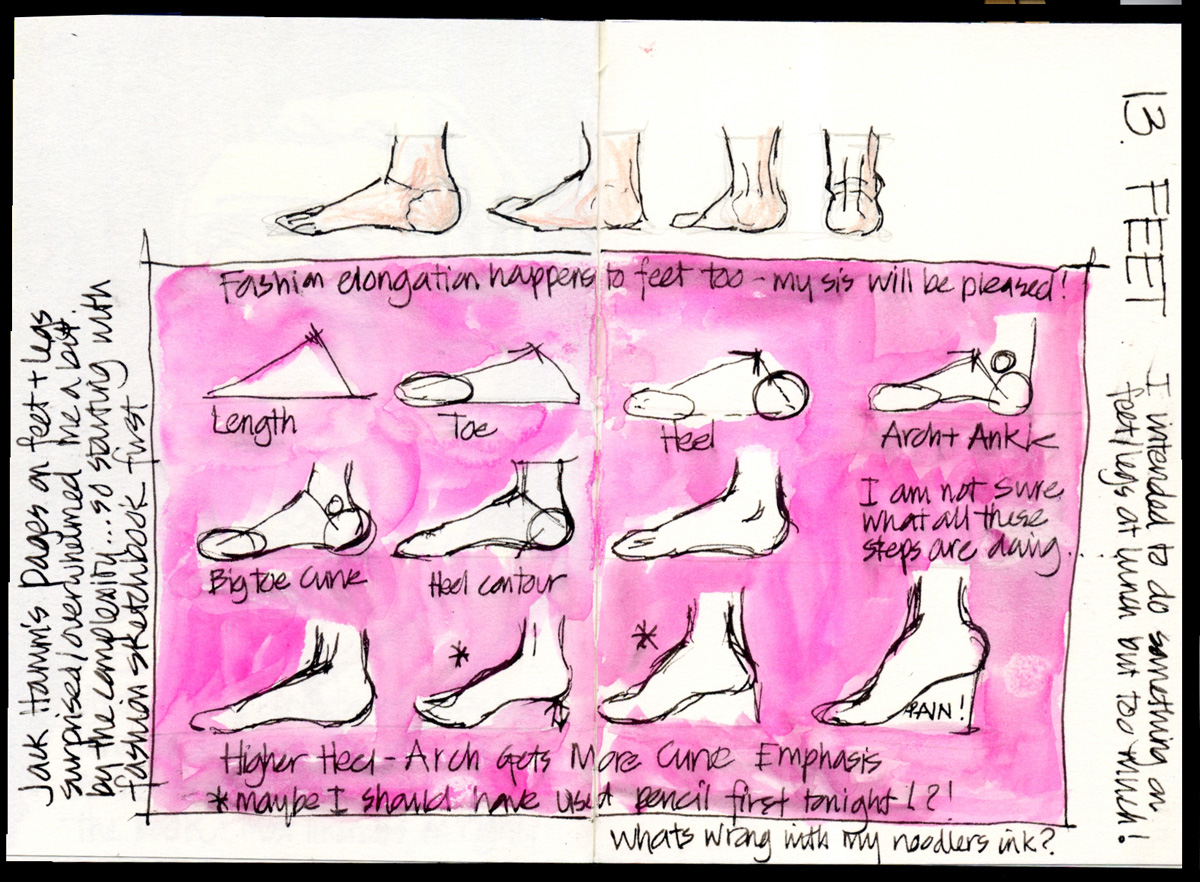 13. FEET
I intended to do something on
feet/legs at lunch but too much!
Jack Hamm's pages on feet + legs
surprised/overwhelmed me a bit.
by the complexity... so starting with
fashion sketchbook first
Fashion elongation happens to feet too - my sis will be pleased!
Length
Toe
Heel
Arch + Ankle
Big toe curve
Heel contour
I am not sure
what all these
steps are doing...
*
*
PAIN!
Higher Heel - Arch Gets More Curve Emphasis
* maybe I should have used pencil first tonight!?!
Whats wrong with my noodlers ink?